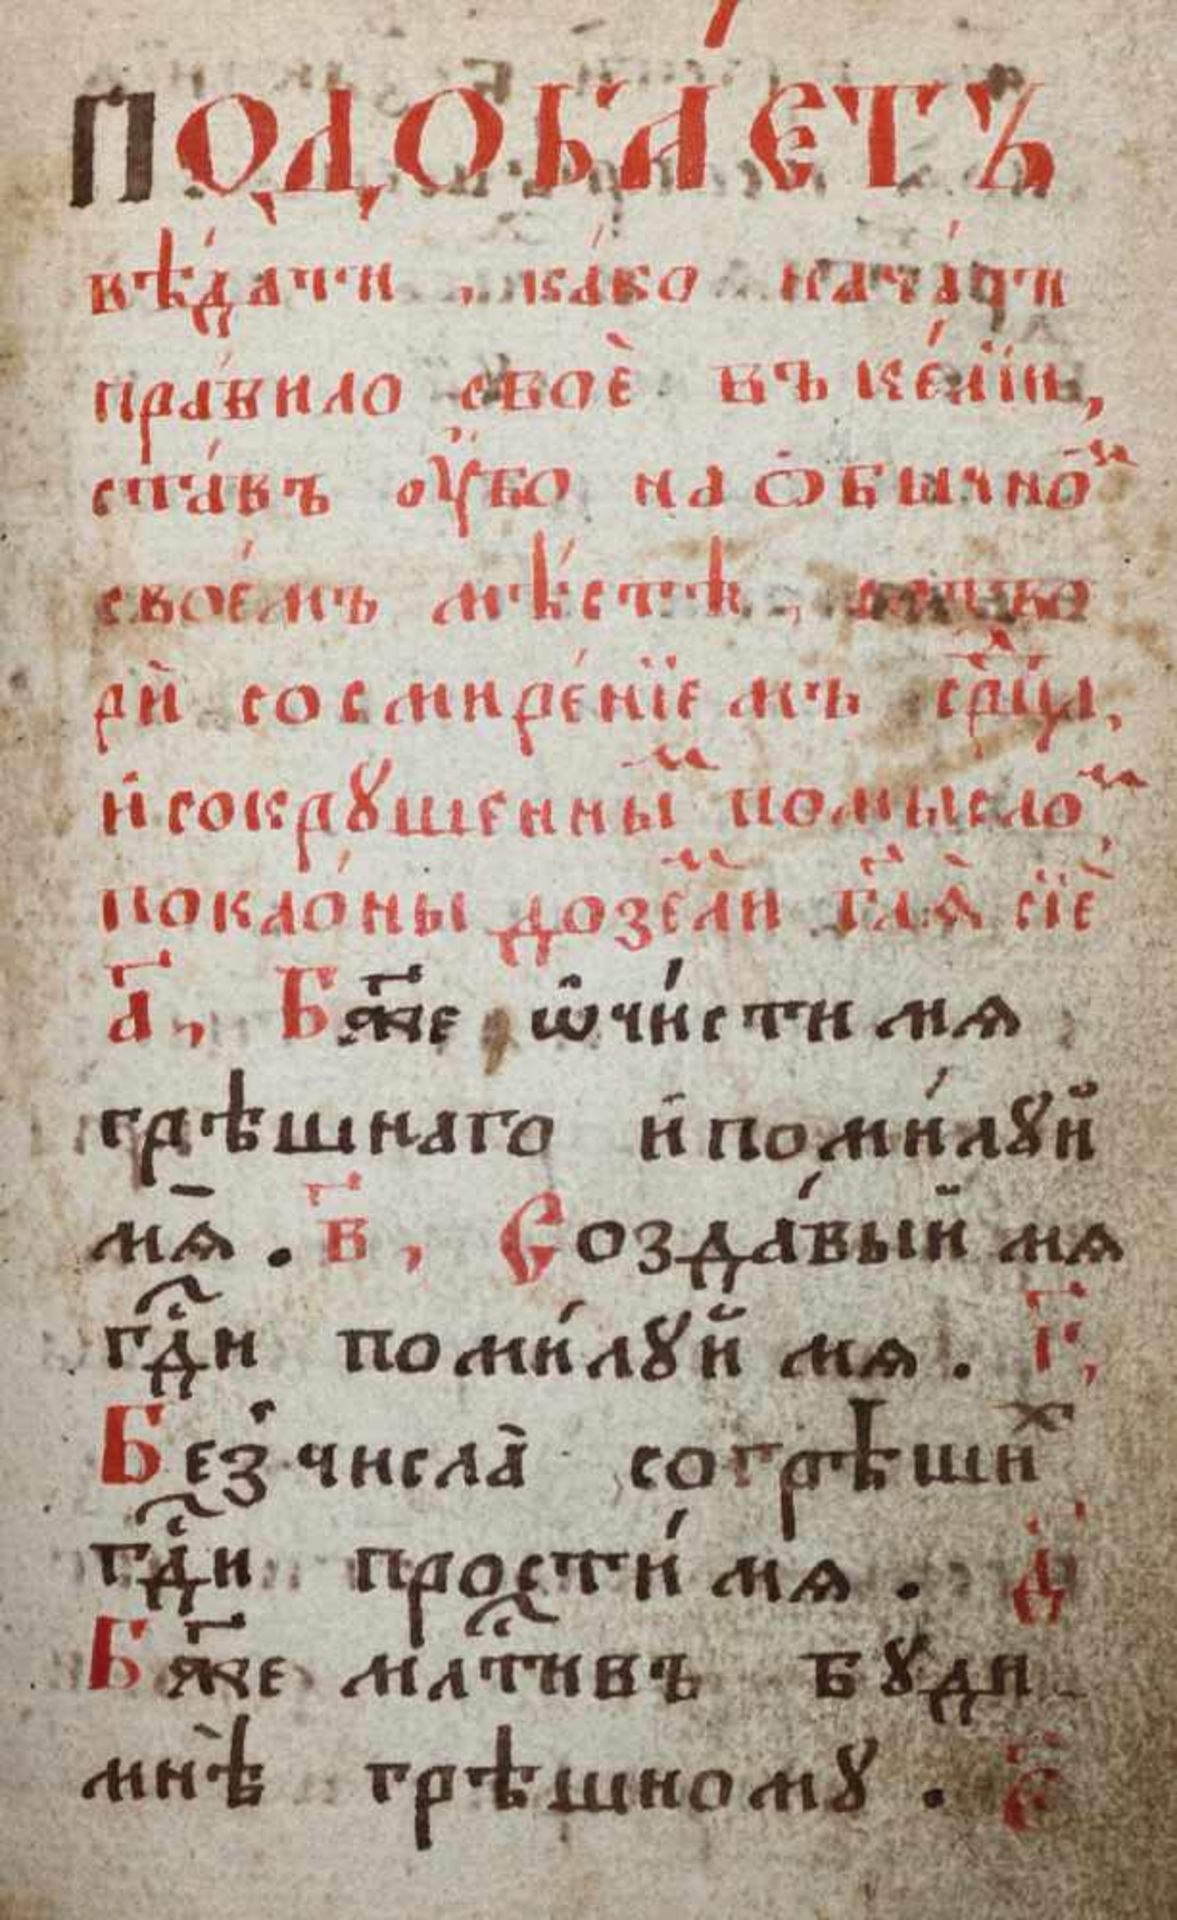 Подоба́етъ
вѣ́дати , ка́ко нача́ти
пра́вило своѐ въ ке́лїи,
ста́въ оу҆́бо на ѻ҆бы́чноⷨ
свое́мъ мѣ́стѣ,
ри̂ со смире́нїемъ срⷣца,
и҆ сокрꙋшенныⷨ помысло́ⷨ
покло́ны до зеⷨли гл҃ѧ сїѐ
а҃, Бж҃е ѡ҆чи́сти мѧ
грѣшнаго и҆ поми́лꙋй
мѧ̀. в҃, Созда́вый мѧ
гдⷭ҇и поми́лꙋй мѧ. г҃,
Без̾ числа̀ согрѣшиⷯ
гдⷭ҇и прости́ мѧ. д҃
Бж҃е млⷭ҇тивъ бꙋди
мнѣ̀ грѣшномꙋ. є҃